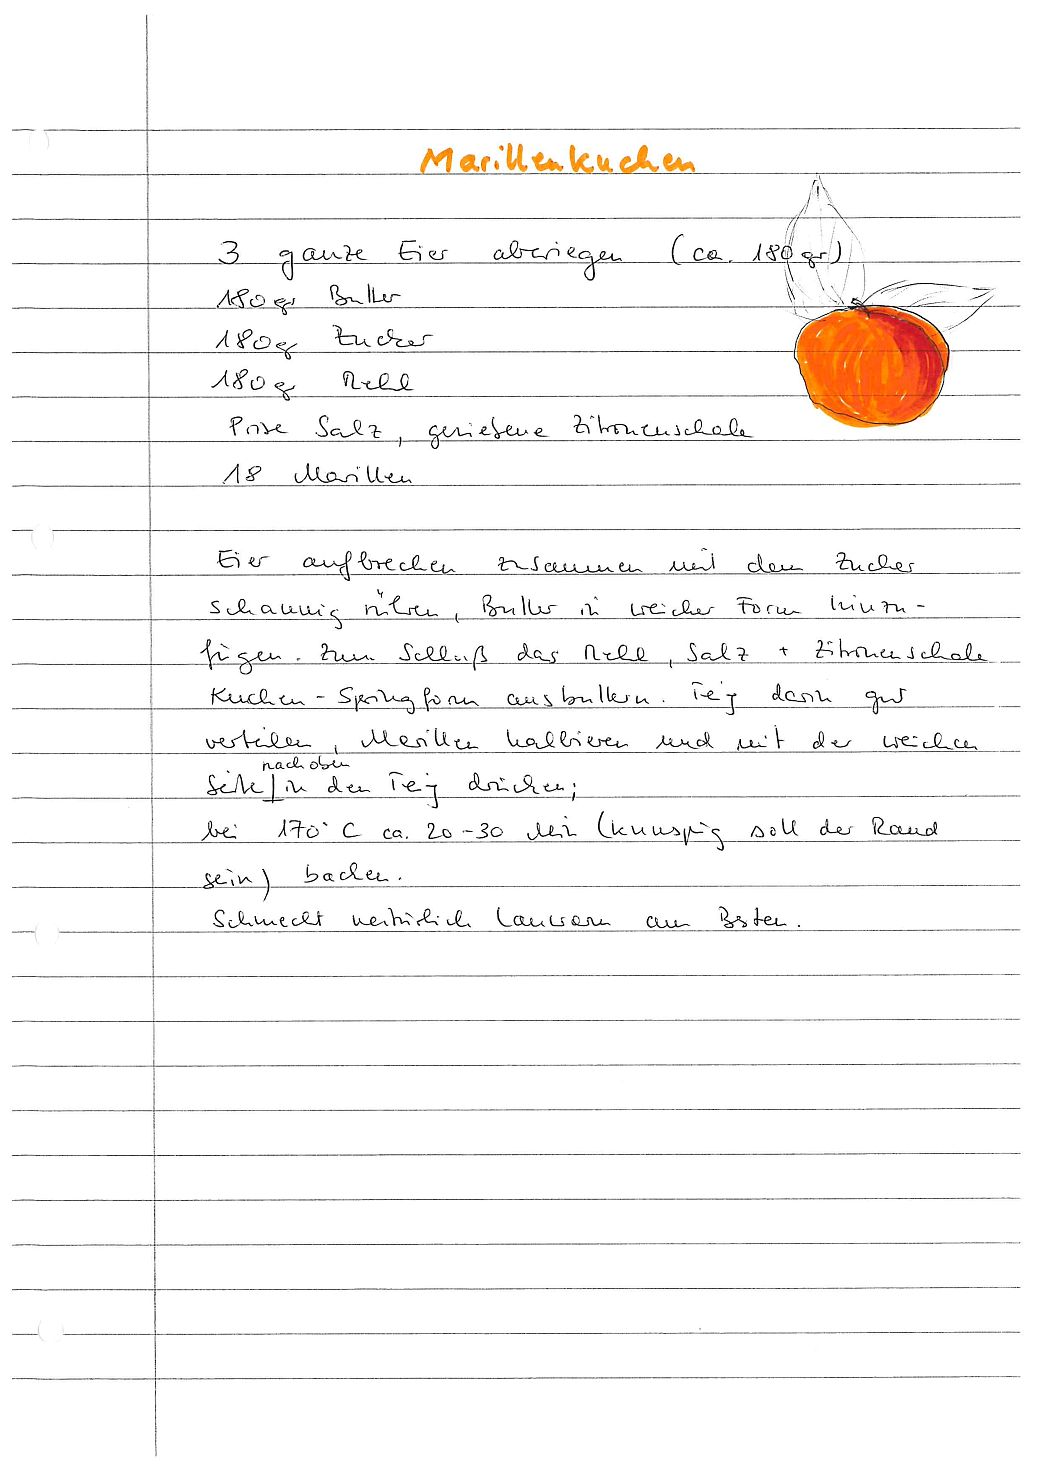 Marillenkuchen
3 ganze Eier abwiegen (ca. 180 gr)
180 gr Butter
180 gr Zucker
180 gr Mehl
Prise Salz, geriebene Zitronenschale
18 Marillen
Eier aufbrechen zusammen mit dem Zucker
schaumig rühren, Butter in weicher Form hinzu-
fügen. Zum Schluß das Mehl, Salz + Zitronenschale
Kuchen-Springform ausbuttern. Teig darin gut
verteilen, Marillen halbieren und mit der weichen
nach oben
Seite in den Teig drücken;
bei 170° C ca. 20-30 Min (knusprig soll der Rand
sein) backen.
Schmeckt natürlich lauwarm am Besten.